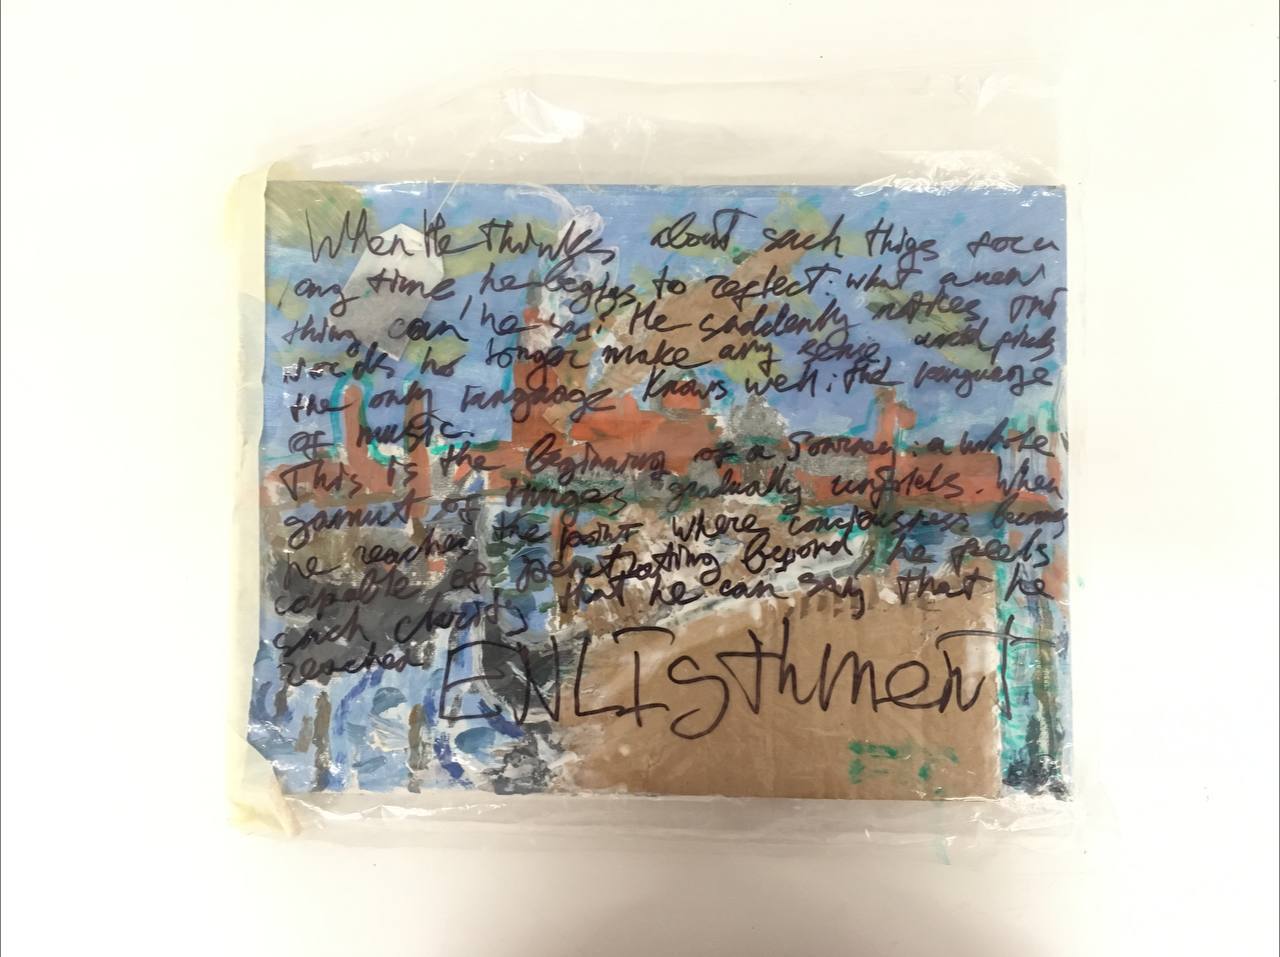 When He thinks about such thigs for a
long time, he begins to reflect: what a new
thing can he say? He suddenly notices that
words no longer make any sense and picks
the only language knows well: the language
of music.
This is the beginning of a journey: a whole
gamut of things gradually unfolds. When
he reaches the point where consciousness becomes
capable of penetrating beyond, he feels
such clarity that he can say that he
reaches ENLISthmenT
ET